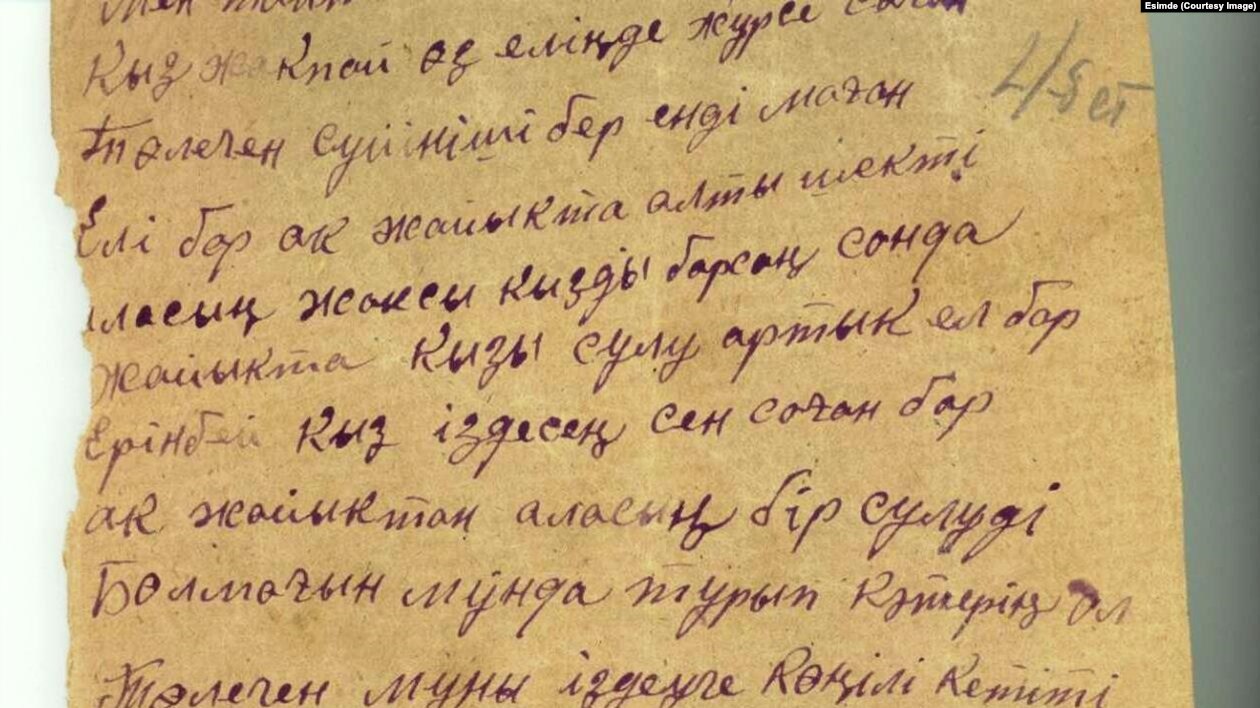 Esimde (Courtesy Image)
Мен
Кыз жакпай өз еліңде жүрсе саған
4/-8 ст
Төлеген сүйінші бер енді маған
Елі бар ак жайыкта алты шекті
аласың жаксы кызды барсаң сонда
Жайыкта кызы сулу артык ел бар
Ерінбей кыз іздесең сен саған бар
ак жайыктан аласың бір сулуді
Болмағын мұнда турып кәтерің ол
Төлеген муны іздеуге көңілі кетіті